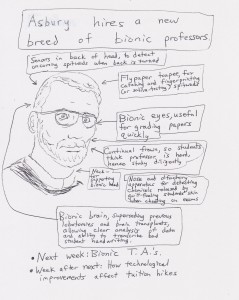 Asbury hires a new
breed of bionic professors
Sensors in back of head, to detect
oncoming spitwads when back is turned
Flypaper toupee, for
catching and fingerprinting
or otherwise testing spitwads
Bionic eyes, useful
for grading papers
quickly
Continual frown, so students
think professor is hard,
hence study diligently
Neck -
supporting
bionic head
Nose and olfactory
apparatus for detecting
chemicals released by
guilt-feeling students' skin
when cheating on exams
Bionic brain, superseding previous
lobotomies and brain transplants,
allowing clear analysis of data
and ability to transcribe bad
student handwriting.
• Next week: Bionic T.A.'s.
• Week after next: How technological
improvements affect tuition hikes